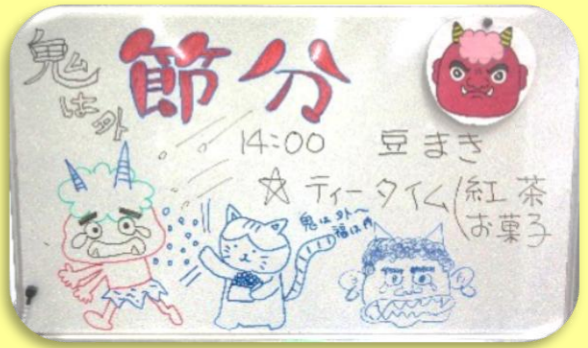 鬼は外
節分
14:00 豆まき
☆ティータイム(紅茶
お菓子
鬼は外〜
福は内